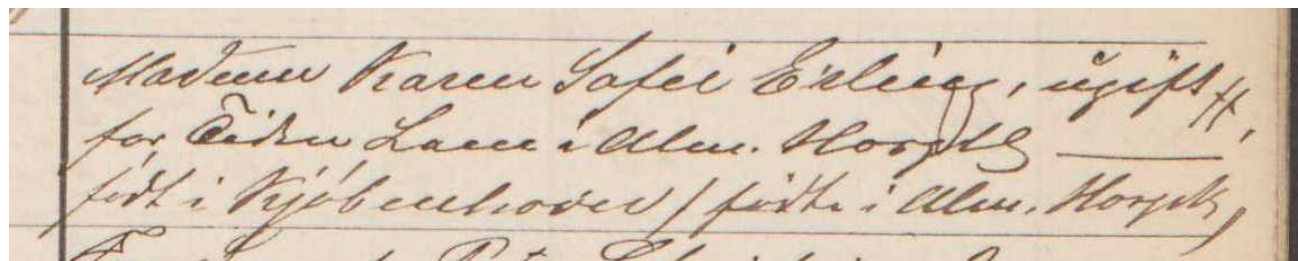 Madam Karen Sofie Erling, ugift
for Tiden Lam i Alm. Hospitl
født i Kjøbenhavn / født i Alm. Hospitl,